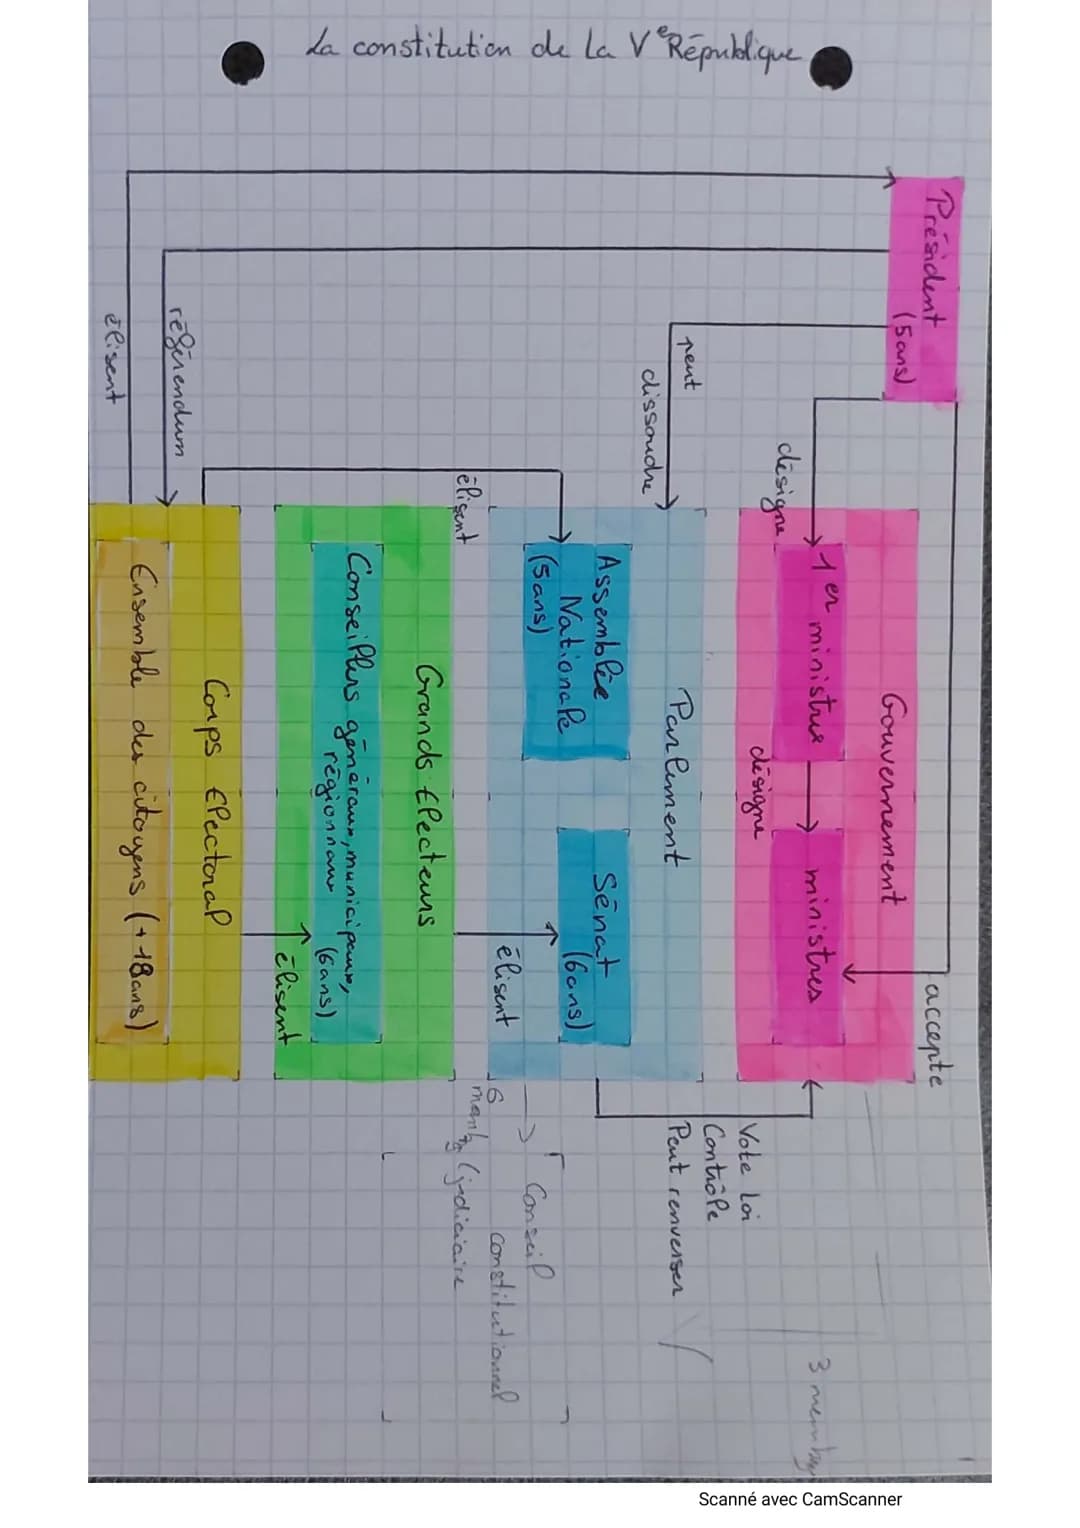 La constitution de la Ve République
Président
(5ans)
accepte
désigne
Gouvernement
1er ministre
ministres
désigne
peut
dissoudre
Parlement
Assemblée
Nationale
(5ans)
Sénat
(6ans)
Vote Loi
Contrôle
Peut renverser
3 membres
élisent
élisent
Conseil
constitutionnel
6
(judiciaire
Grands Électeurs
Conseillers généraux, municipaux,
régionaux
(6ans)
élisent
référendum
élisent
Corps Électoral
Ensemble des citoyens (+18ans)
Scanné avec CamScanner